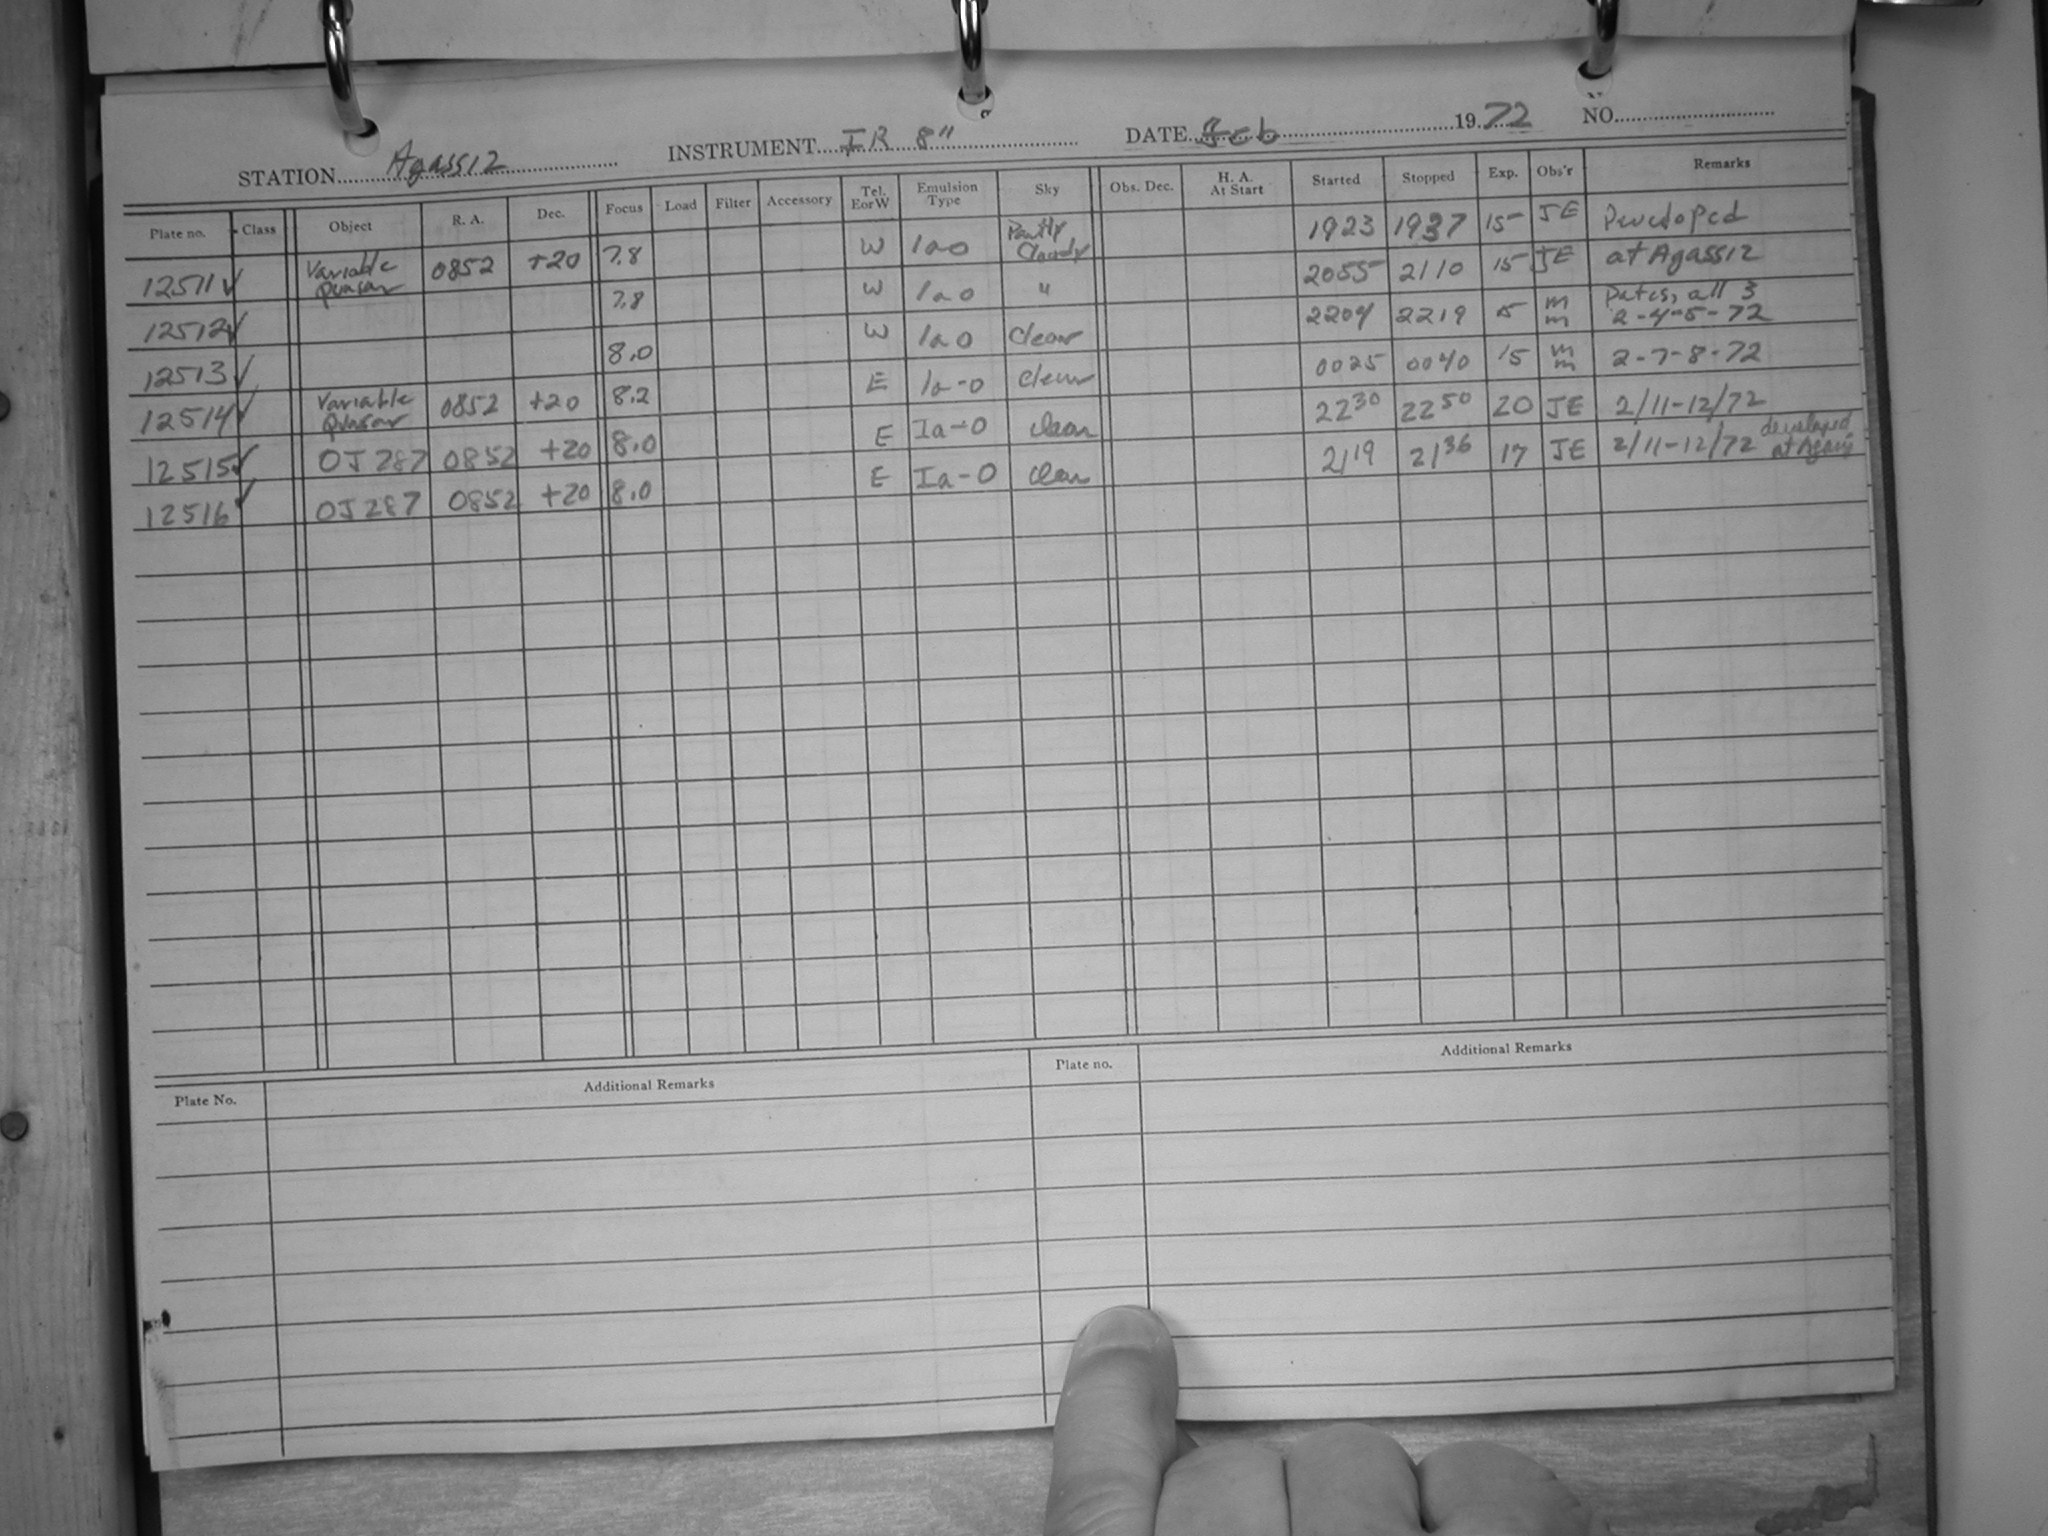 STATION Agassiz INSTRUMENT IR 8" DATE Feb 1972 NO.
Plate no. Class Object R. A. Dec. Focus Load Filter Accessory Tel. E or W Emulsion Type Sky Obs. Dec. H. A. At Start Started Stopped Exp. Obs'r Remarks
12511 ✓ Variable Quasar 0852 +20 7.8 W 1a0 Partly Cloudy 1923 1937 15 JE Developed
12512 ✓ 7.8 W 1a0 " 2055 2110 15 JE at Agassiz
12513 ✓ 8.0 W 1a0 Clear 2204 2219 15 mm Dates, all 3 2-4-5-72
12514 ✓ Variable Quasar 0852 +20 8.2 E 1a-0 Clear 0025 0040 15 mm 2-7-8-72
12515 ✓ OJ 287 0852 +20 8.0 E Ia-O clear 2230 2250 20 JE 2/11-12/72
12516 ✓ OJ 287 0852 +20 8.0 E Ia-O clear 2119 2136 17 JE 2/11-12/72 developed at Agassiz
Plate No. Additional Remarks Plate no. Additional Remarks